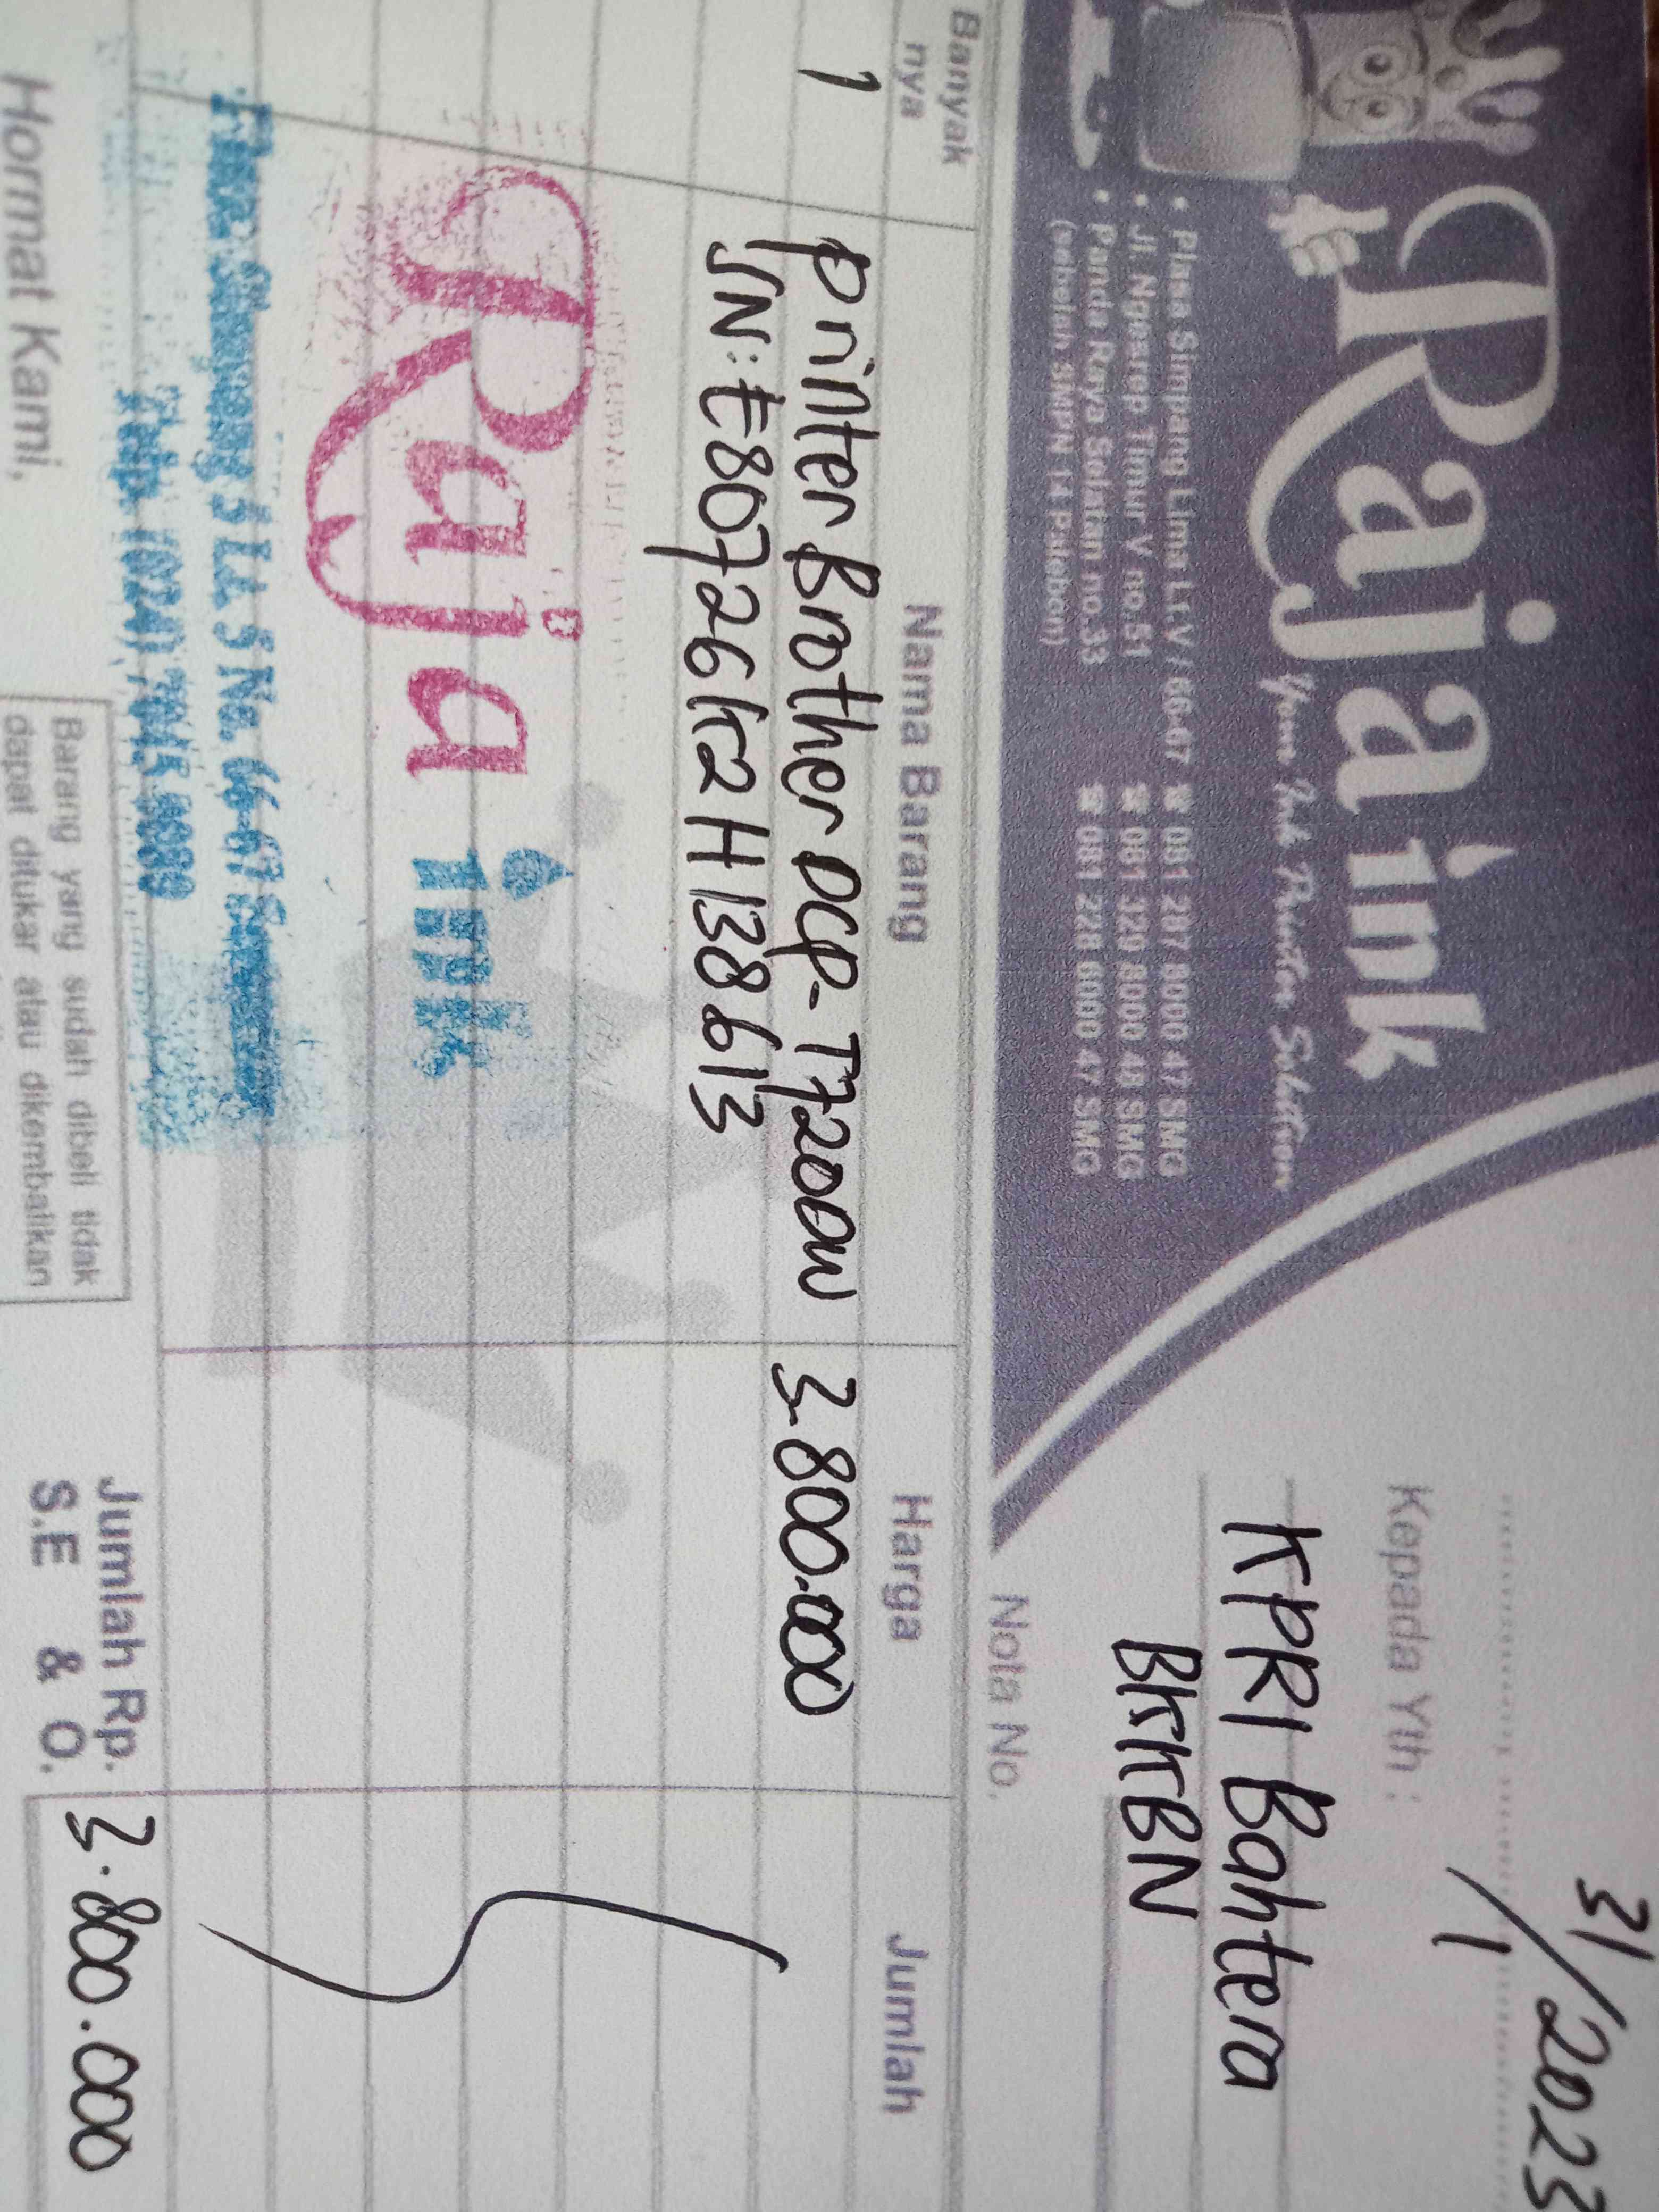 Raja ink
Your Ink Printer Solution
• Plasa Simpang Lima Lt.V / 66-67 ☎ 081 207 8000 47 SMG
• Jl. Ngesrep Timur V no.51 ☎ 081 329 8000 48 SMG
• Panda Raya Selatan no.33 ☎ 081 228 6000 47 SMG
(sebelah SMPN 14 Palebon)
31/1/2023
Kepada Yth :
KPRI Bahtera
BKKBN
Nota No.
Banyak nya Nama Barang Harga Jumlah
1 Printer Brother DCP-T720DW 3.800.000
S/N: E80726K2H138613
Raja ink
Plaza Simpang 5 Lt. 5 No. 66-67 Semarang
Telp. (024)
Hormat Kami,
Barang yang sudah dibeli tidak
dapat ditukar atau dikembalikan
Jumlah Rp. 3.800.000
S.E & O.